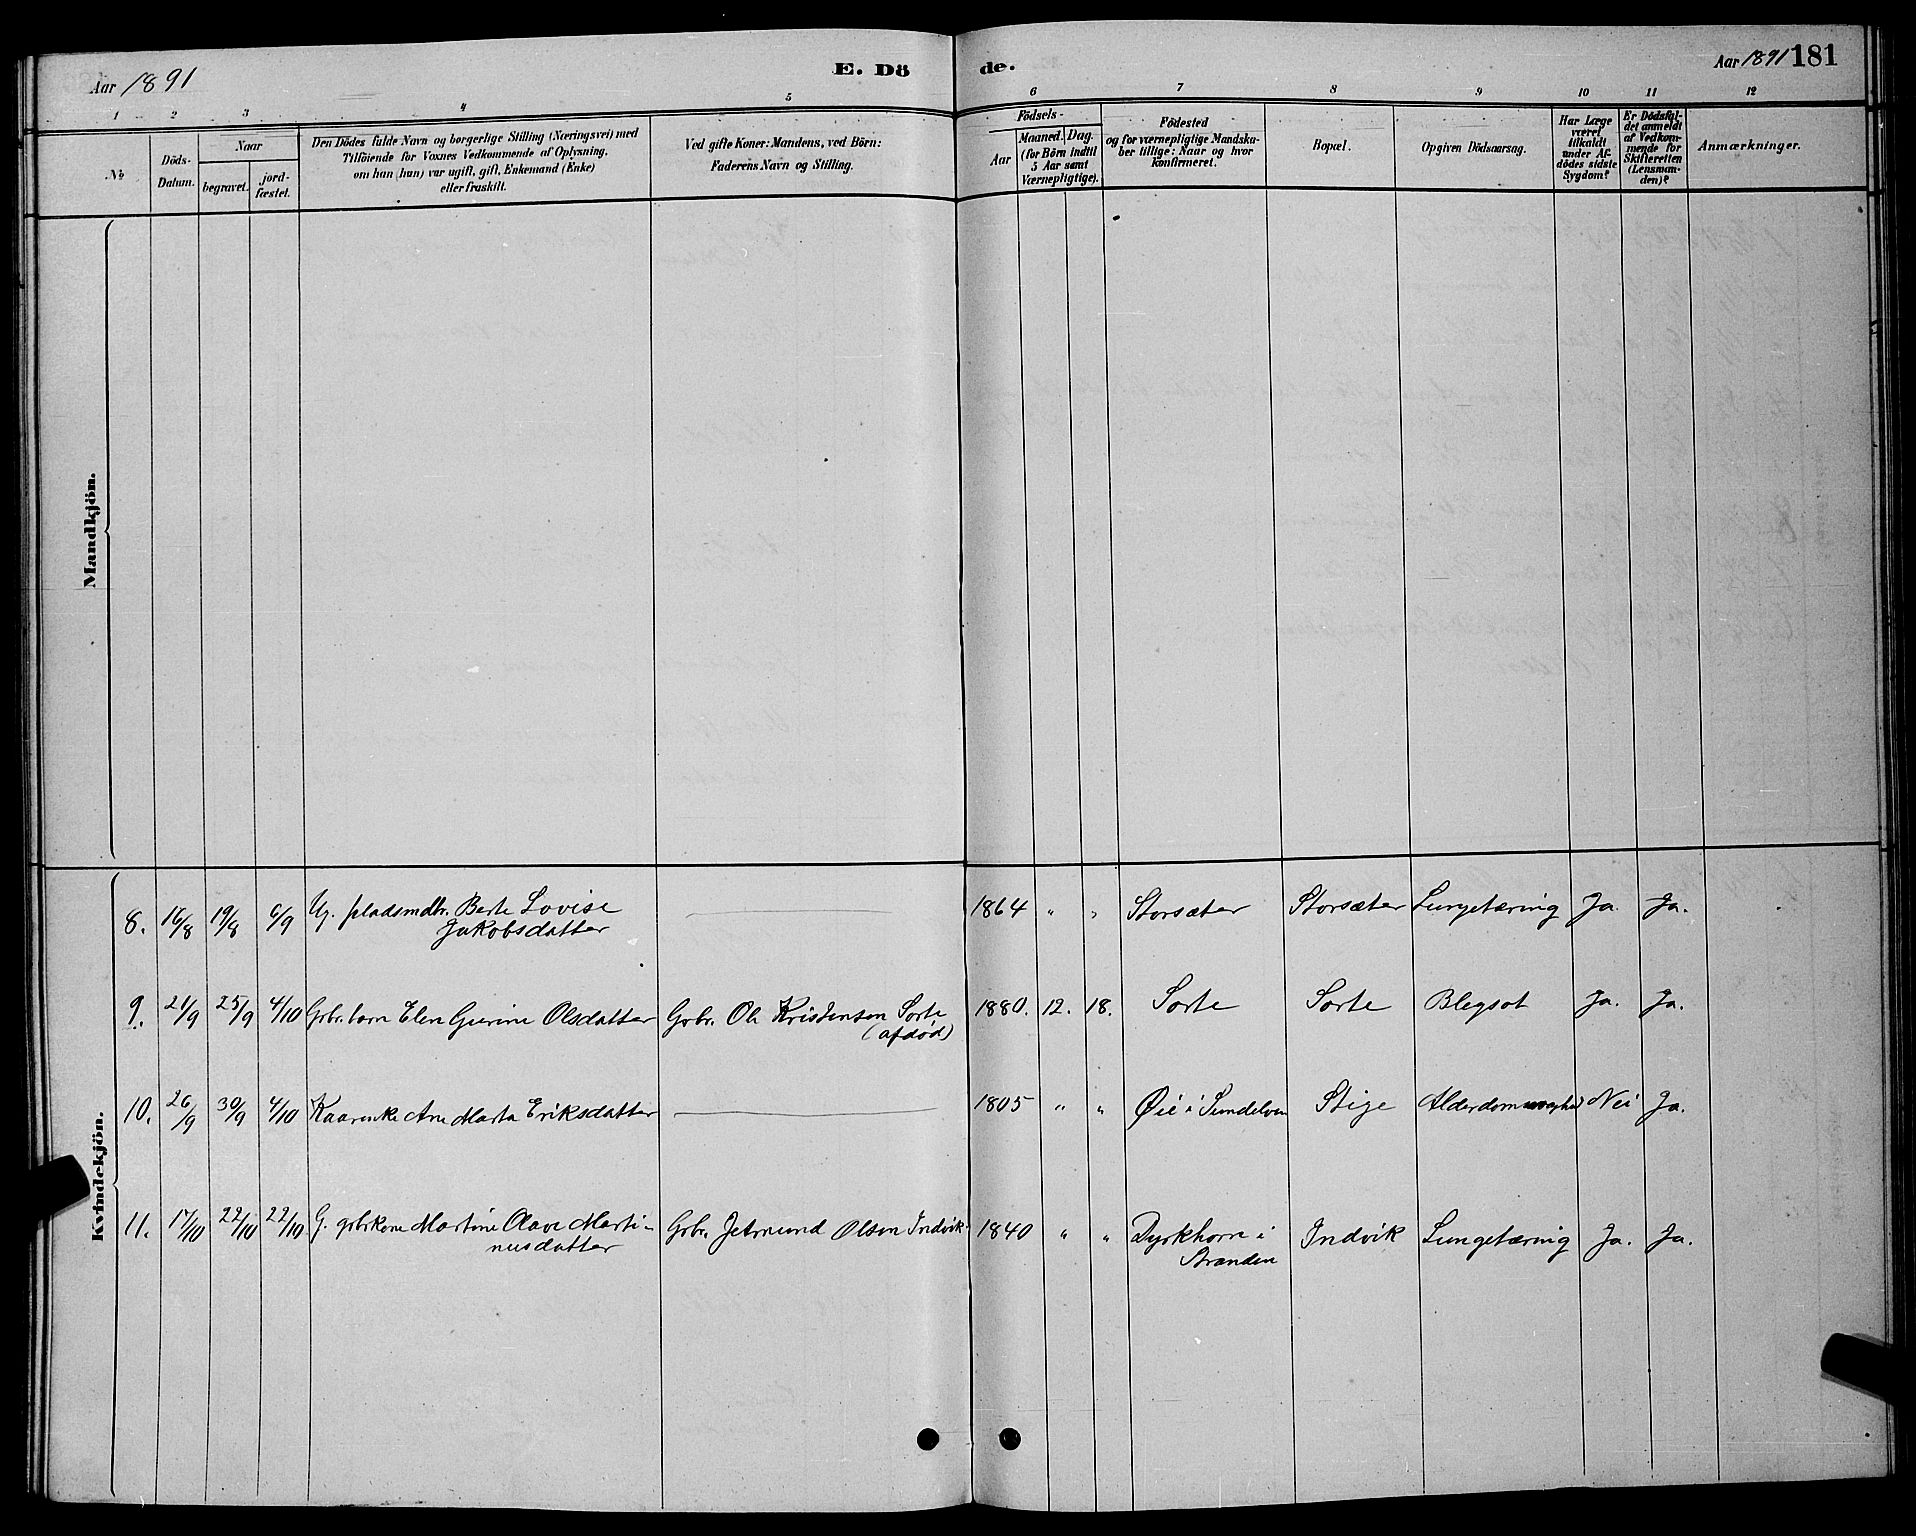 Aar 1891
E. Dö
de.
Aar 1891
181
1 2 3 4 5 6 7 8 9 10 11 12
No
Döds-
Datum.
Naar
begravet.
jord-
fæstet.
Den Dödes fulde Navn og borgerlige Stilling (Næringsvei) med
Tilföiende for Voxnes Vedkommende af Oplysning,
om han (hun) var ugift, gift, Enkemand (Enke)
eller fraskilt.
Ved gifte Koner: Mandens, ved Börn:
Faderens Navn og Stilling.
Födsels-
Aar
Maaned.
Dag.
(for Börn indtil
5 Aar samt
Værnepligtige).
Födested
og for værnepligtige Mandska-
ber tillige: Naar og hvor
konfirmeret.
Bopæl.
Opgiven Dödsaarsag.
Har Læge
været
tilkaldt
under Af-
dödes sidste
Sygdom?
Er Dödsfal-
det anmeldt
af Vedkom-
mende for
Skifteretten
(Lensman-
den)?
Anmærkninger.
Mandkjön.
Kvindekjön.
8. 16/8 19/8 6/9 Ug. pladsmdtr. Berte Lovise 1864 " " Storsæter Storsæter Lungetæring Ja. Ja.
Jakobsdatter
9. 21/9 25/9 4/10 Grbr. barn Elen Gurine Olsdatter Grbr. Ole Kristensen Sorte 1880. 12. 18. Sorte Sorte Blegsot Ja. Ja.
(afdød)
10. 26/9 30/9 4/10 Kaarenke Ane Marta Eriksdatter 1805 " " Øie i Sundelven Stige Nei Ja.
11. 17/10 22/10 22/10 G. grbrkone Martine Olave Marti- Grbr. Jetmund Olsen Indvik 1840 " " Dyrkhorn i Indvik Lungetæring Ja. Ja.
nusdatter Stranden